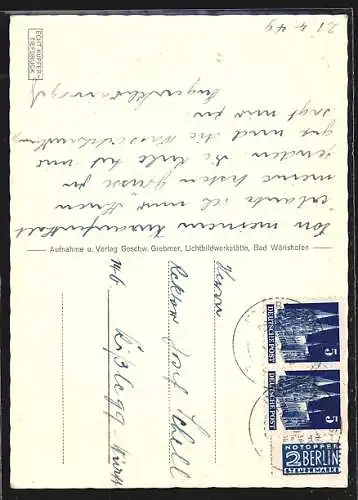 21.4.49
Von meinem Kuraufenthalt
erlaube ich mir Ihnen
meine besten Grüsse zu
senden. Die Kur tut mir
gut und die
sagt mir zu
ECHT KUPFER-
TIEFDRUCK
Aufnahme u. Verlag Geschw. Grebmer, Lichtbildwerkstätte, Bad Wörishofen
Herrn
Rektor Josef Schell
14b Kißlegg Württ
5
DEUTSCHE POST
5
DEUTSCHE POST
NOTOPFER
2 BERLIN
STEUERMARKE